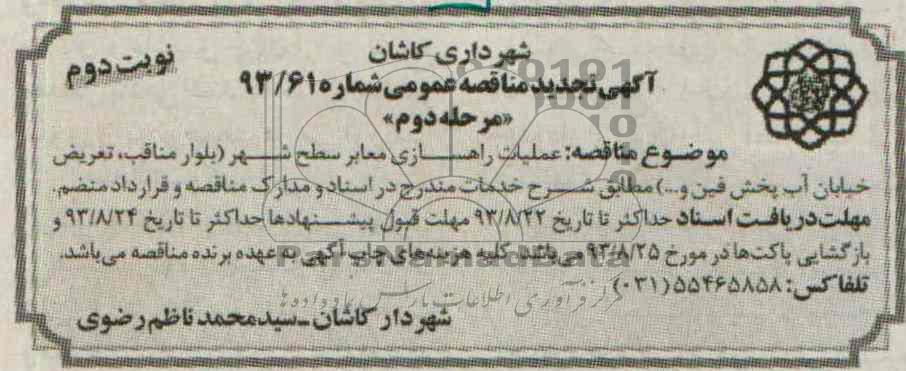 شهرداری کاشان
نوبت دوم
آگهی تجدید مناقصه عمومی شماره ۹۳/۶۱
«مرحله دوم»
موضوع مناقصه: عملیات راهسازی معابر سطح شهر (بلوار مناقب، تعریض
خیابان آب پخش فین و...) مطابق شرح خدمات مندرج در اسناد و مدارک مناقصه و قرارداد منضم.
مهلت دریافت اسناد حداکثر تا تاریخ ۹۳/۸/۲۲ مهلت قبول پیشنهادها حداکثر تا تاریخ ۹۳/۸/۲۴ و
بازگشایی پاکت‌ها در مورخ ۹۳/۸/۲۵ می باشد. کلیه هزینه‌های چاپ آگهی به عهده برنده مناقصه می‌باشد.
تلفاکس: ۵۵۴۶۵۸۵۸ (۰۳۱)
شهردار کاشان ـ سیدمحمد ناظم رضوی
ParsNamadData
مرکز فرآوری اطلاعات پارس نماد داده ها